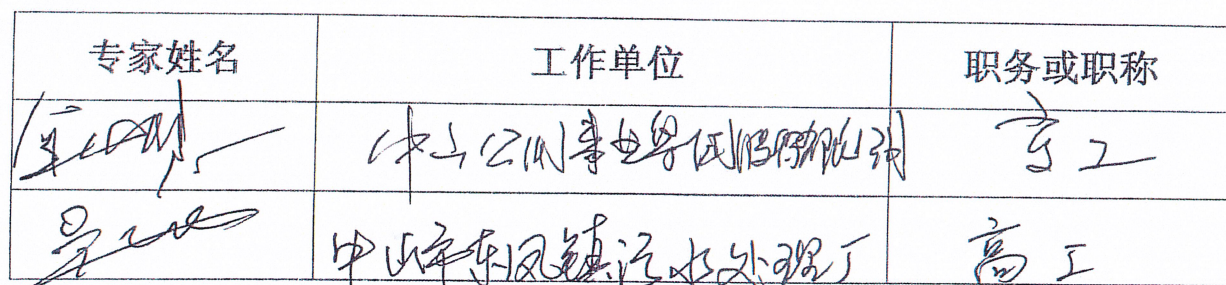 专家姓名 工作单位 职务或职称
中山公用事业集团股份有限公司 高工
吴 中山市东凤镇污水处理厂 高工